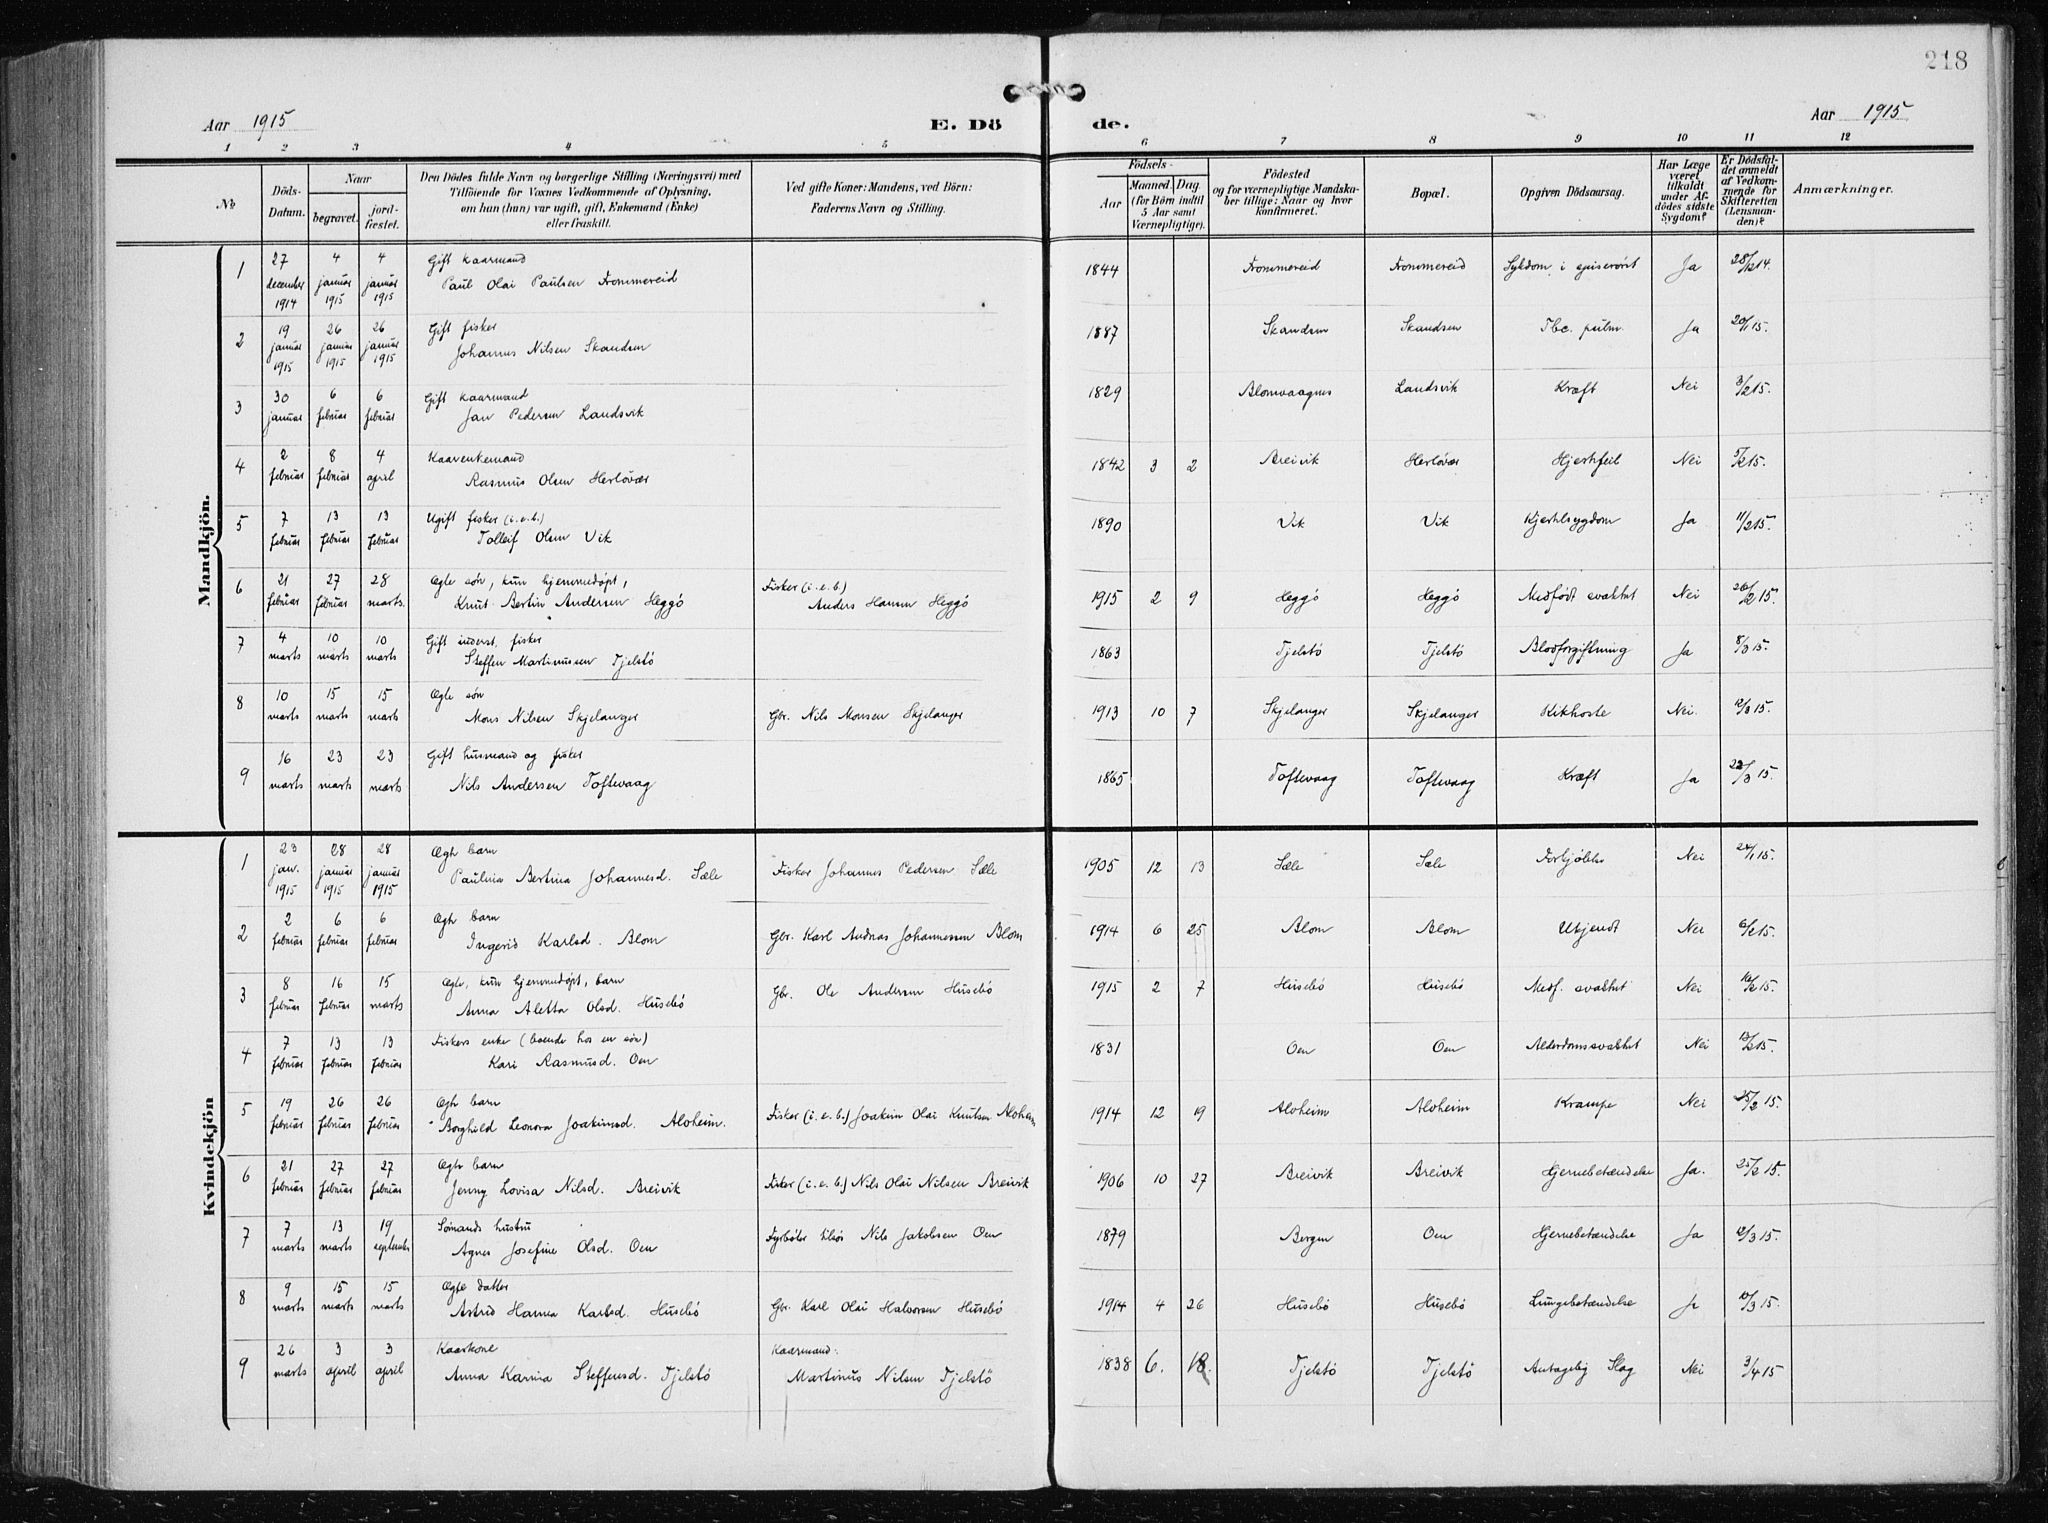 218
Aar 1915
E. Dö
de.
Aar 1915
1 2 3 4 5 6 7 8 9 10 11 12
No
Döds-
Datum.
Naar
begravet.
jord-
fæstet.
Den Dödes fulde Navn og borgerlige Stilling (Næringsvei) med
Tilföiende for Voxnes Vedkommende af Oplysning,
om han (hun) var ugift, gift, Enkemand (Enke)
eller fraskilt.
Ved gifte Koner: Mandens, ved Börn:
Faderens Navn og Stilling.
Födsels-
Aar
Maaned. Dag.
(for Börn indtil
5 Aar samt
Værnepligtige).
Födested
og for værnepligtige Mandska-
ber tillige: Naar og hvor
konfirmeret.
Bopæl.
Opgiven Dödsaarsag.
Har Læge
været
tilkaldt
under Af-
dödes sidste
Sygdom?
Er Dödsfal-
det anmeldt
af Vedkom-
mende for
Skifteretten
(Lensman-
den)?
Anmærkninger.
Mandkjön.
1 27 december 1914 4 januar 1915 4 januar 1915 Gift kaarmand
Paul Olai Paulsen Trommereid 1844 Trommereid Trommereid Sykdom i spiserørit Ja 28/12 14.
2 19 januar 1915 26 januar 1915 26 januar 1915 Gift fisker
Johannes Nilsen Skandsen 1887 Skandsen Skandsen Tbc. pulm. Ja 20/1 15.
3 30 januar 6 februar 6 februar Gift kaarmand
Jan Pedersen Landsvik 1829 Blomvaagnes Landsvik Kræft Nei 3/2 15.
4 2 februar 8 februar 4 april Kaarenkemand
Rasmus Olsen Herløvær 1842 3 2 Breivik Herløvær Hjertefeil Nei 5/2 15.
5 7 februar 13 februar 13 februar Ugift fisker (i.e.b.)
Tolleif Olsen Vik 1890 Vik Vik Kjertelsygdom Ja 11/2 15.
6 21 februar 27 februar 28 marts. Ægte søn, kun hjemmedøpt,
Knut Bertin Andersen Heggö Fisker (i.e.b)
Anders Hansen Heggö 1915 2 9 Heggö Heggö Medfødt svakhet Nei 26/2 15.
7 4 marts 10 marts 10 marts Gift inderst. fisker
Steffen Martinussen Tjelstö 1863 Tjelstö Tjelstö Blodforgiftning Ja 8/3 15.
8 10 marts 15 marts 15 marts Ægte søn
Mons Nilsen Skjelanger Gbr. Nils Monsen Skjelanger 1913 10 7 Skjelanger Skjelanger Kikhoste Nei. 12/3 15.
9 16 marts 23 marts 23 marts Gift husmand og fisker
Nils Andersen Toftevaag 1865 Toftevaag Toftevaag Kræft Ja 22/3 15.
Kvindekjön
1 23 jan. 1915 28 januar 1915 28 januar 1915 Ægte barn
Paulina Bertina Johannesd. Sæle Fisker Johannes Pedersen Sæle 1905 12 13 Sæle Sæle Forkjølelse Nei 24/1 15.
2 2 februar 6 februar 6 februar Ægte barn
Ingerid Karlsd. Blom Gbr. Karl Andreas Johannessen Blom 1914 6 25 Blom Blom Ukjendt Nei 6/2 15.
3 8 februar 16 februar 15 marts Ægte, kun hjemmedøpt, barn
Anna Aletta Olsd. Husebö Gbr. Ole Andersen Husebö 1915 2 7 Husebö Husebö Medf. svakhet Nei 16/2 15.
4 7 februar 13 februar 13 februar Fiskers enke (boende hos en søn)
Kari Rasmusd. Oen 1831 Oen Oen Alderdomssvakhet Nei 13/2 15.
5 19 februar 26 februar 26 februar Ægte barn
Borghild Leonora Joakimsd. Alvheim. Fisker (i.e.b.) Joakim Olai Knutsen Alvheim 1914 12 19 Alvheim Alvheim Krampe Nei 25/2 15.
6 21 februar 27 februar 27 februar Ægte barn
Jenny Lovisa Nilsd. Breivik Fisker (i.e.b.) Nils Olai Nilsen Breivik 1906 10 27 Breivik Breivik Hjernebetændelse Ja. 25/2 15.
7 7 marts 13 marts 19 september Sømands hustru
Agnes Josefine Olsd. Oen Fyrbøter tilsjøs Nils Jakobsen Oen 1879 Bergen Oen Hjernebetændelse Ja 12/3 15.
8 9 marts 15 marts 15 marts Ægte datter
Astrid Hanna Karlsd. Husebö Gbr. Karl Olai Halvorsen Husebö 1914 4 26 Husebö Husebö Lungebetændelse Ja 12/3 15.
9 26 marts 3 april 3 april Kaarkone
Anna Karina Steffensd. Tjelstö Kaarmand:
Martinus Nilsen Tjelstö 1838 6. 18. Tjelstö Tjelstö Antagelig Slag Nei 3/4 15